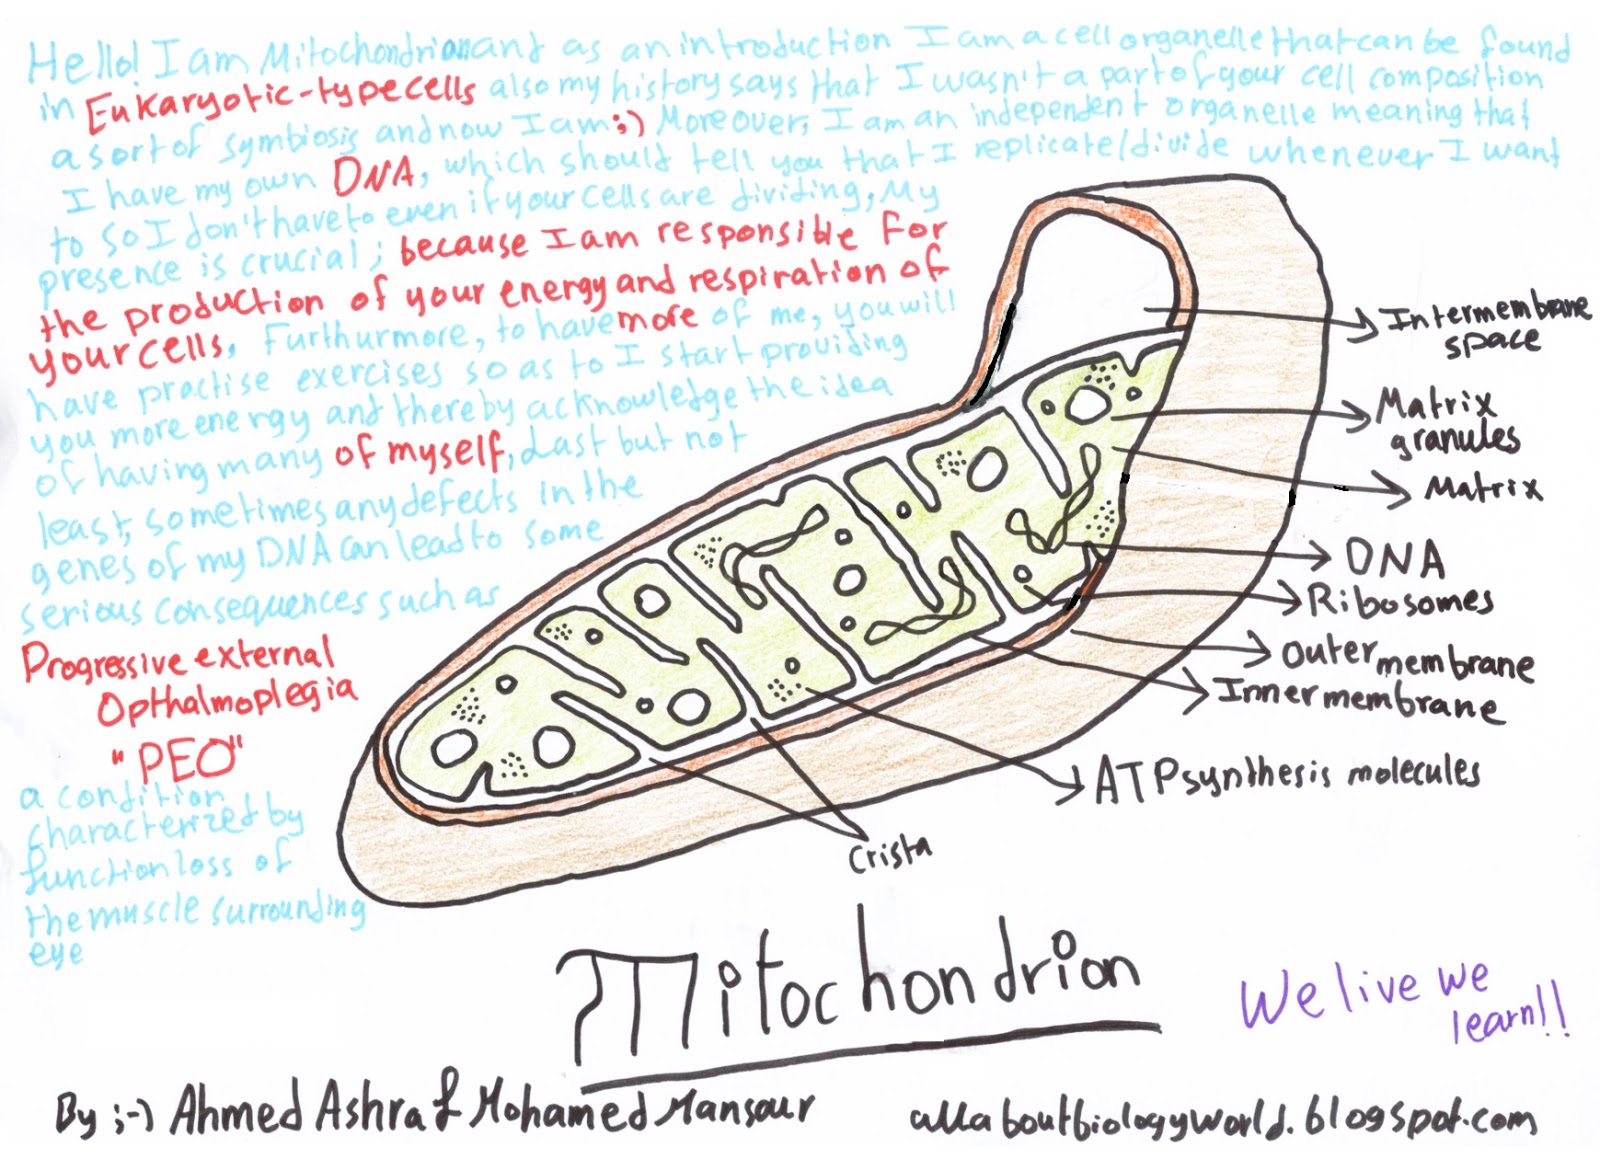 Hello! I am Mitochondrion and as an introduction I am a cell organelle that can be found
in Eukaryotic-type cells also my history says that I wasn't a part of your cell composition
a sort of symbiosis and now I am ;) Moreover, I am an independent organelle meaning that
I have my own DNA, which should tell you that I replicate/divide whenever I want
to so I don't have to even if your cells are dividing, My
presence is crucial; because I am responsible for
the production of your energy and respiration of
your cells. Furthurmore, to have more of me, you will
have practise exercises so as to I start providing
you more energy and thereby acknowledge the idea
of having many of myself, Last but not
least, sometimes any defects in the
genes of my DNA can lead to some
serious consequences such as
Progressive external
Opthalmoplegia
"PEO"
a condition
characterized by
function loss of
the muscle surrounding
eye
Intermembrane
space
Matrix
granules
Matrix
DNA
Ribosomes
Outer membrane
Inner membrane
ATP synthesis molecules
Crista
Mitochondrion
We live we
learn!!
By ;-) Ahmed Ashraf Mohamed Mansour
allaboutbiologyworld.blogspot.com